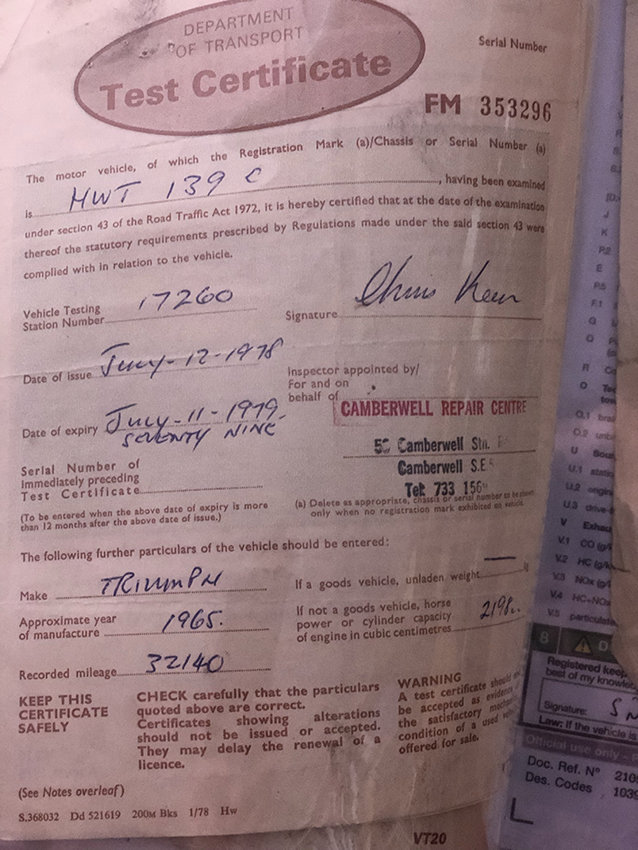 DEPARTMENT
OF TRANSPORT
Test Certificate
Serial Number
FM 353296
The motor vehicle, of which the Registration Mark (a)/Chassis or Serial Number (a)
is HWT 139 C, having been examined
under section 43 of the Road Traffic Act 1972, it is hereby certified that at the date of the examination
thereof the statutory requirements prescribed by Regulations made under the said section 43 were
complied with in relation to the vehicle.
Vehicle Testing
Station Number 17260
Signature
Date of issue July-12-1978
Inspector appointed by/
For and on
behalf of CAMBERWELL REPAIR CENTRE
Date of expiry July-11-1979.
SEVENTY NINE
Camberwell Stn.
Camberwell S.E
Tel: 733 156
Serial Number of
Immediately preceding
Test Certificate
(To be entered when the above date of expiry is more
than 12 months after the above date of issue.)
(a) Delete as appropriate, chassis or serial number to be shown
only when no registration mark exhibited on vehicle.
The following further particulars of the vehicle should be entered:
Make TRIUMPH
If a goods vehicle, unladen weight
Approximate year
of manufacture 1965.
If not a goods vehicle, horse
power or cylinder capacity
of engine in cubic centimetres 2198
Recorded mileage 32140
KEEP THIS
CERTIFICATE
SAFELY
CHECK carefully that the particulars
quoted above are correct.
Certificates showing alterations
should not be issued or accepted.
They may delay the renewal of a
licence.
WARNING
A test certificate should
be accepted as evidence
the satisfactory
condition of a used
offered for sale.
(See Notes overleaf)
S.368032 Dd 521619 200M Bks 1/78 Hw
VT20
J
K
P.2
E
P.5
P.1
R
O
O.1
O.2
U
U.1
U.2
U.3
V
V.1 CO
V.2 HC
V.3 NOx
V.4 HC+NOx
V.5
8
Registered
best of my
Signature:
Law: If the vehicle is
Official use only
Doc. Ref. Nº 210
Des. Codes 1039